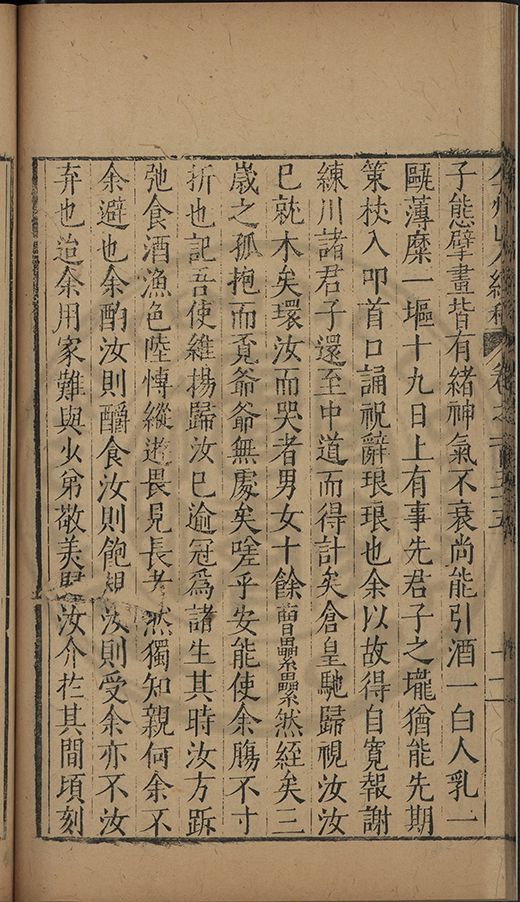 子態擘畫皆有緒神氣不衰尚能引酒一白人乳一
甌薄糜一塸十九日上有事先君子之壠猶能先期
策杖入叩首口誦祝辭琅琅也余以故得自寬報謝
練川諸君子還至中道而得計矣倉皇馳歸視汝汝
已就木矣環汝而哭者男女十餘曹纍纍然絰矣三
歲之孤抱而覔爺爺無處矣嗟乎安能使余膓不寸
折也記吾使維揚歸汝已逾冠爲諸生其時汝方跅
弛食酒漁色陸慱縱遊畏見長者然獨知親何余不
余避也余酌汝則釂食汝則飽規汝則受余亦不汝
弃也迨余用家難與少弟敬美
汝介於其間頃刻
卷之一百五十五
十一